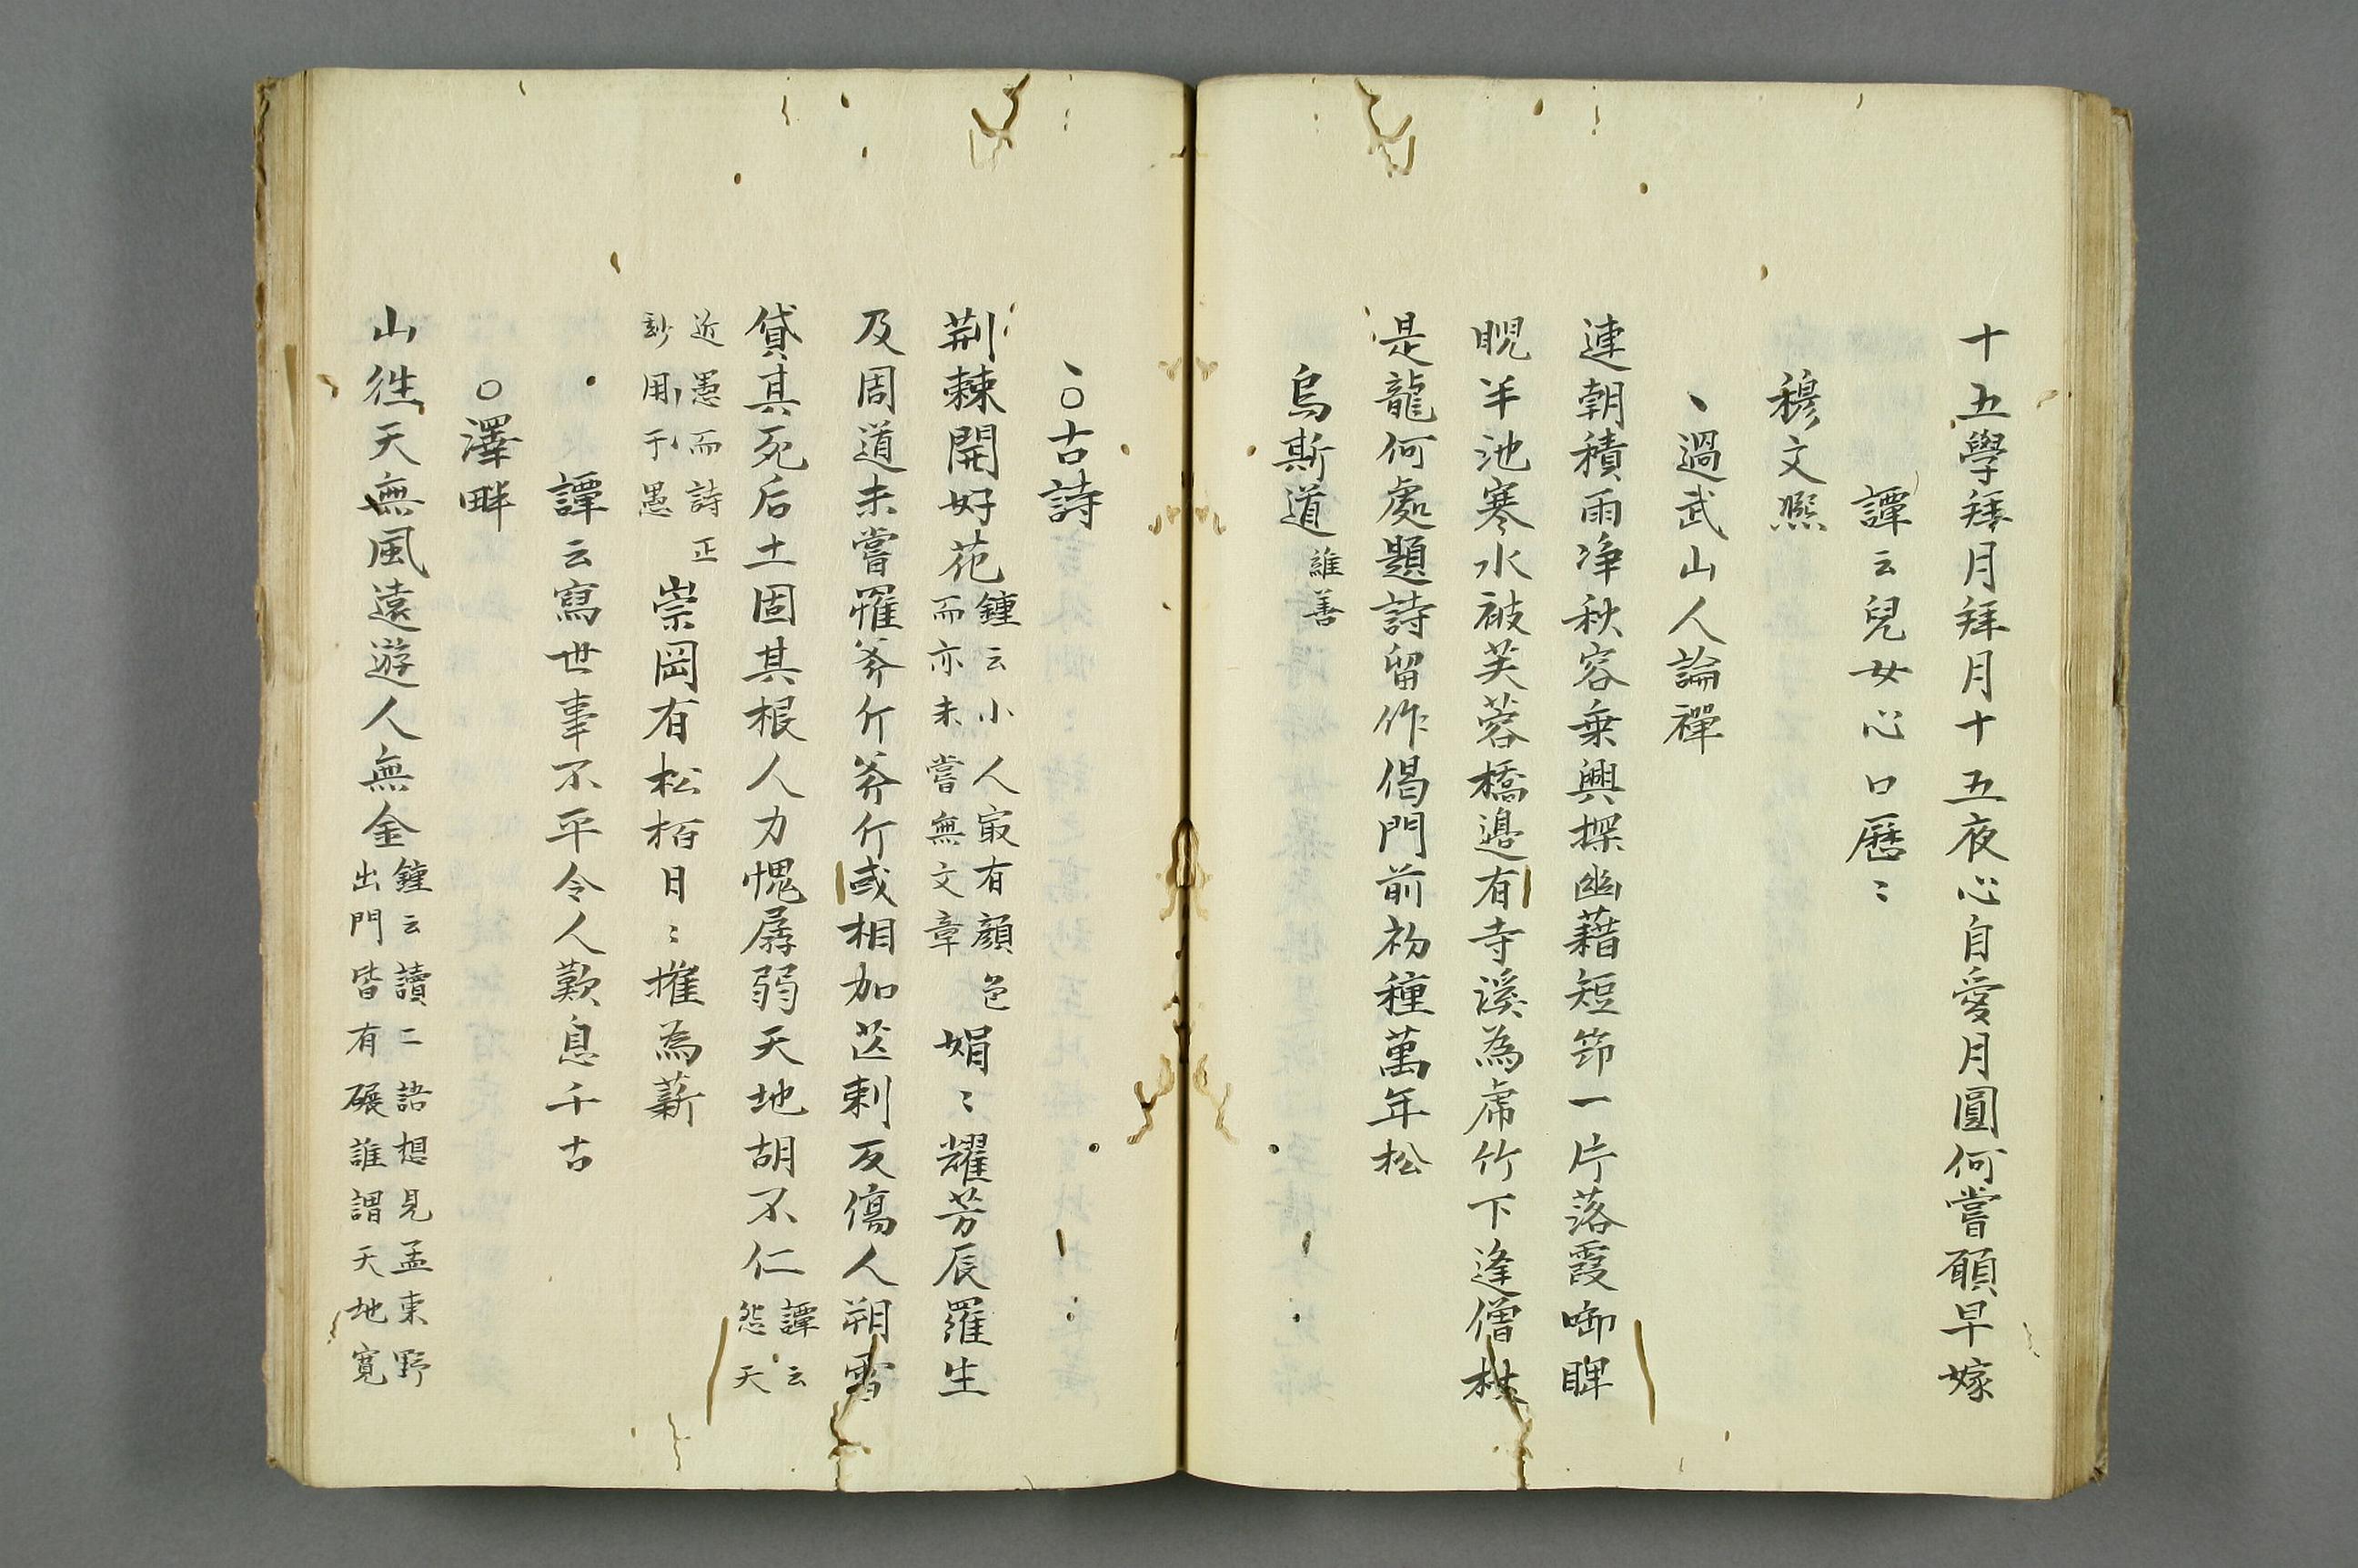 十五學拜月拜月十五夜心自愛月圓何嘗願早嫁
譚云兒女心口歷〻
穆文熙
、過武山人論禪
連朝積雨净秋容乗興探幽藉短笻一片落霞啣睥
睨半池寒水被芙蓉橋邉有寺溪為席竹下逢僧杖
是龍何處題詩留作偈門前初種萬年松
烏斯道 誰善
、○古詩
荆棘開好花 鍾云小人㝡有顔色而亦未嘗無文章 娟〻耀芳辰羅生
及周道未嘗罹斧斤斧斤或相加芒刺反傷人朔雪
貸其死后土固其根人力愧孱弱天地胡不仁 譚云怨天
近愚而詩正玅用于愚 崇岡有松栢日〻摧為薪
譚云寫世事不平令人歎息千古
○澤畔
山徃天無風遠遊人無金 鍾云讀二語想見孟東野出門皆有碾誰謂天地寛